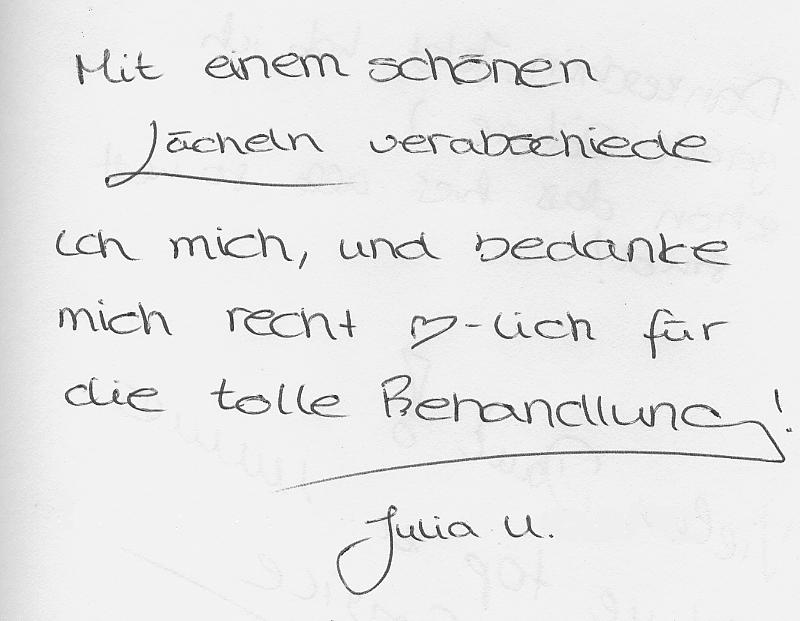 Mit einem schönen
Lächeln verabschiede
ich mich, und bedanke
mich recht ♡-lich für
die tolle Behandlung!
Julia U.